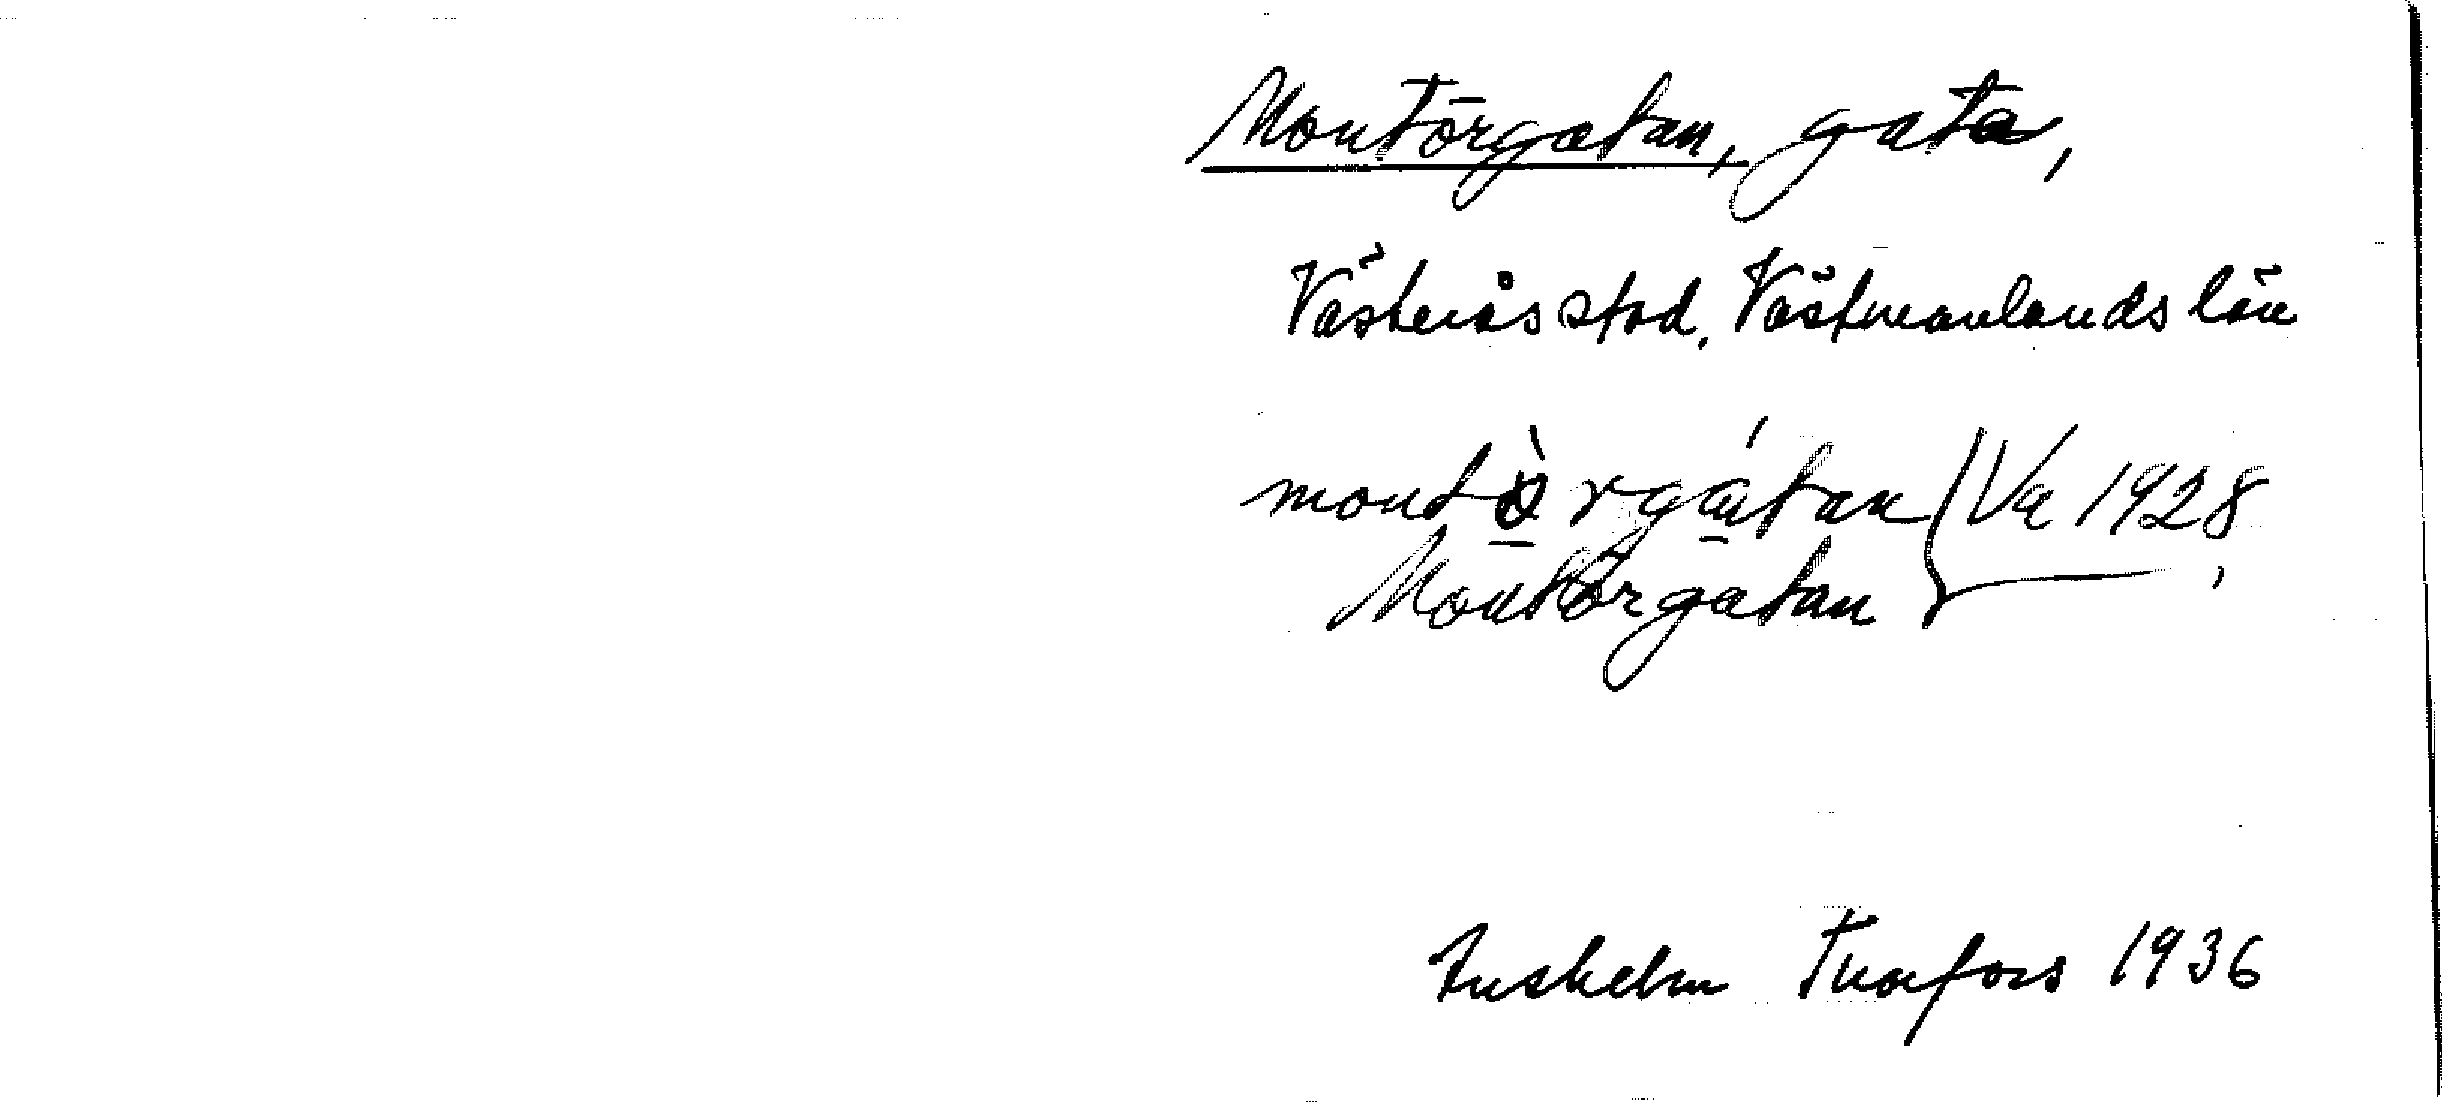 Montörgatan, gata,
Västerås stad, Västmanlands län
montö̀rgátan (Va 1928,
Montörgatan
Anshelm Tuafors 1936